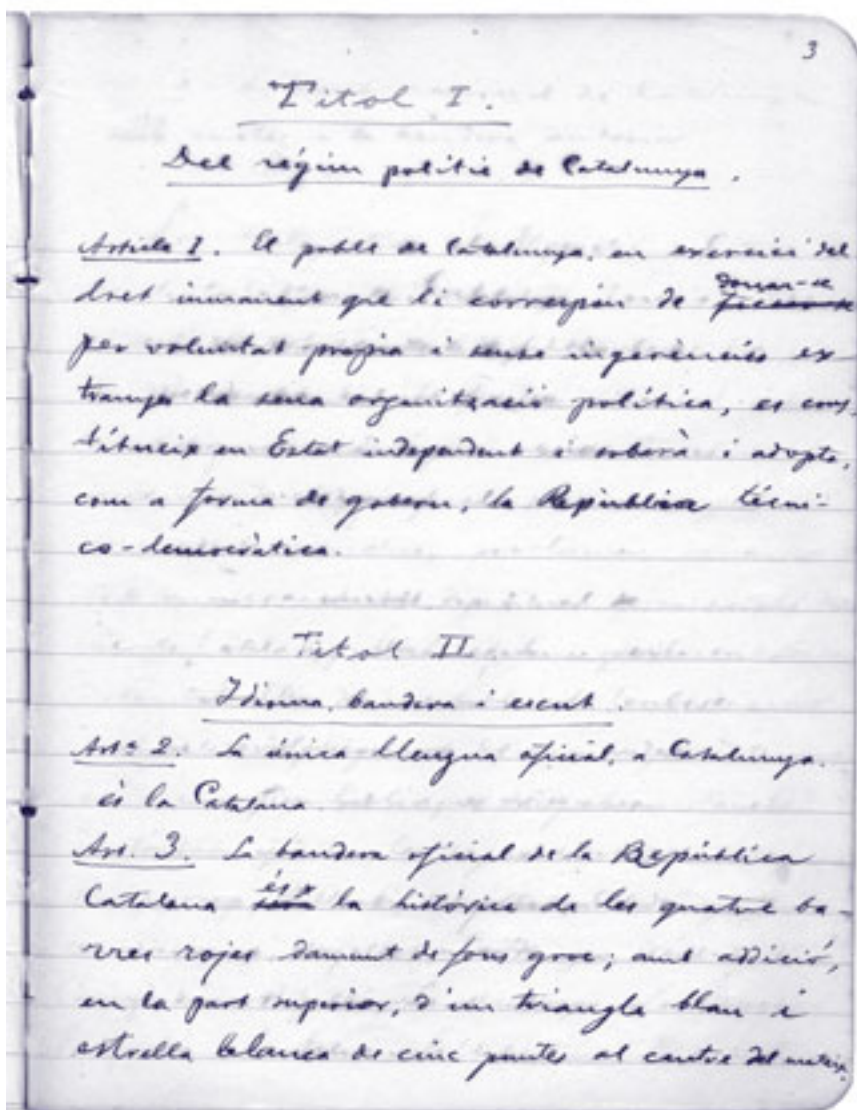 3
Titol I.
Del régim politic de Catalunya.
Article 1. El poble de Catalunya, en exercici del
donar-se
dret inmanent que li correspón de
per voluntat propia i sense ingerències ex-
tranges la seva organització política, es cons-
titueix en Estat independent i soberà i adopta,
com a forma de gobern, la República tècni-
co-democràtica.
Titol II
Idioma, bandera i escut
Art. 2. La única llengua oficial, a Catalunya.
és la Catalana.
Art. 3. La bandera oficial de la República
és
Catalana la històrica de les quatre ba-
rres rojes damunt de fons groc; amb addició,
en la part superior, d'un triangle blau i
estrella blanca de cinc puntes al centre del mateix.